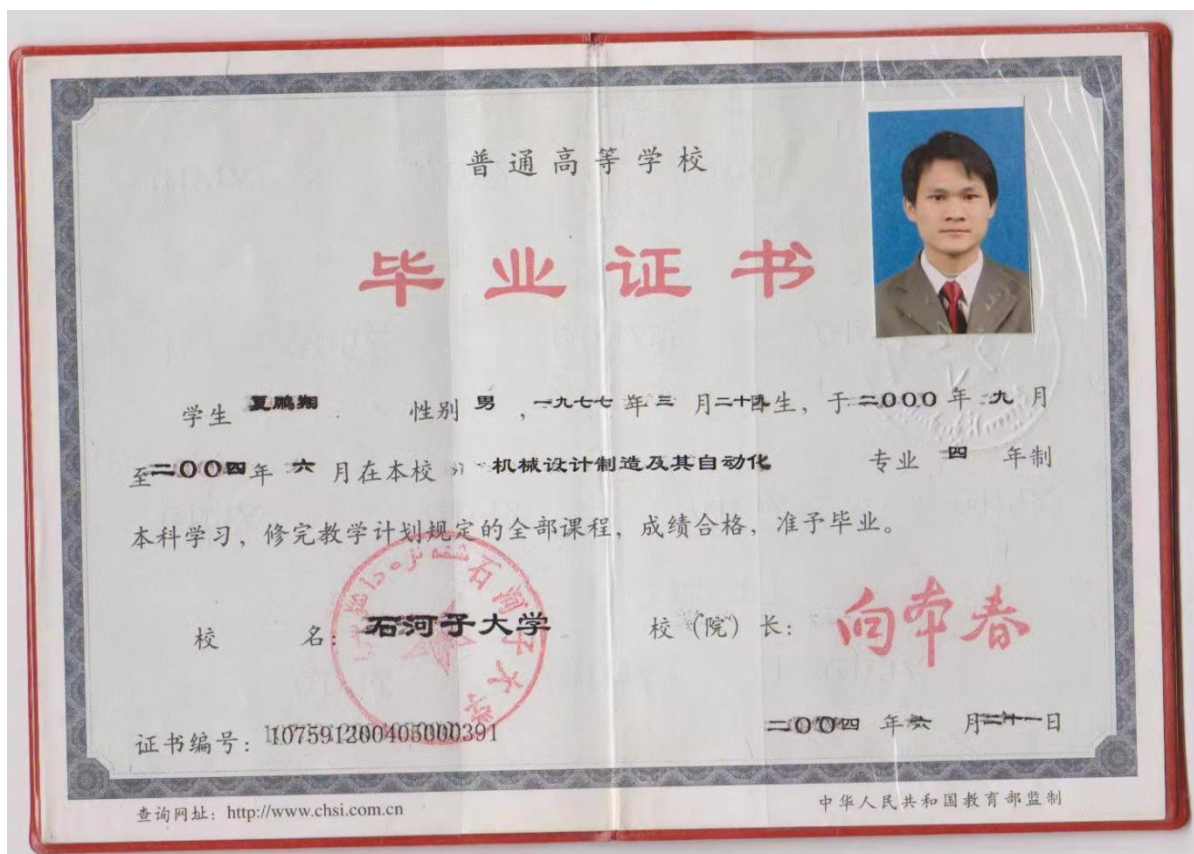 普通高等学校
毕业证书
学生 夏鹏翔 性别 男 ,一九七七 年 三 月二十九日生, 于二000 年 九 月
至二00四年 六 月在本校 机械设计制造及其自动化 专业 四 年制
本科学习, 修完教学计划规定的全部课程, 成绩合格, 准予毕业。
石河子大学
校 名: 石河子大学 校 (院) 长: 向本春
证书编号: 107591200405000391 二00四 年 六 月二十一日
查询网址: http://www.chsi.com.cn 中华人民共和国教育部监制